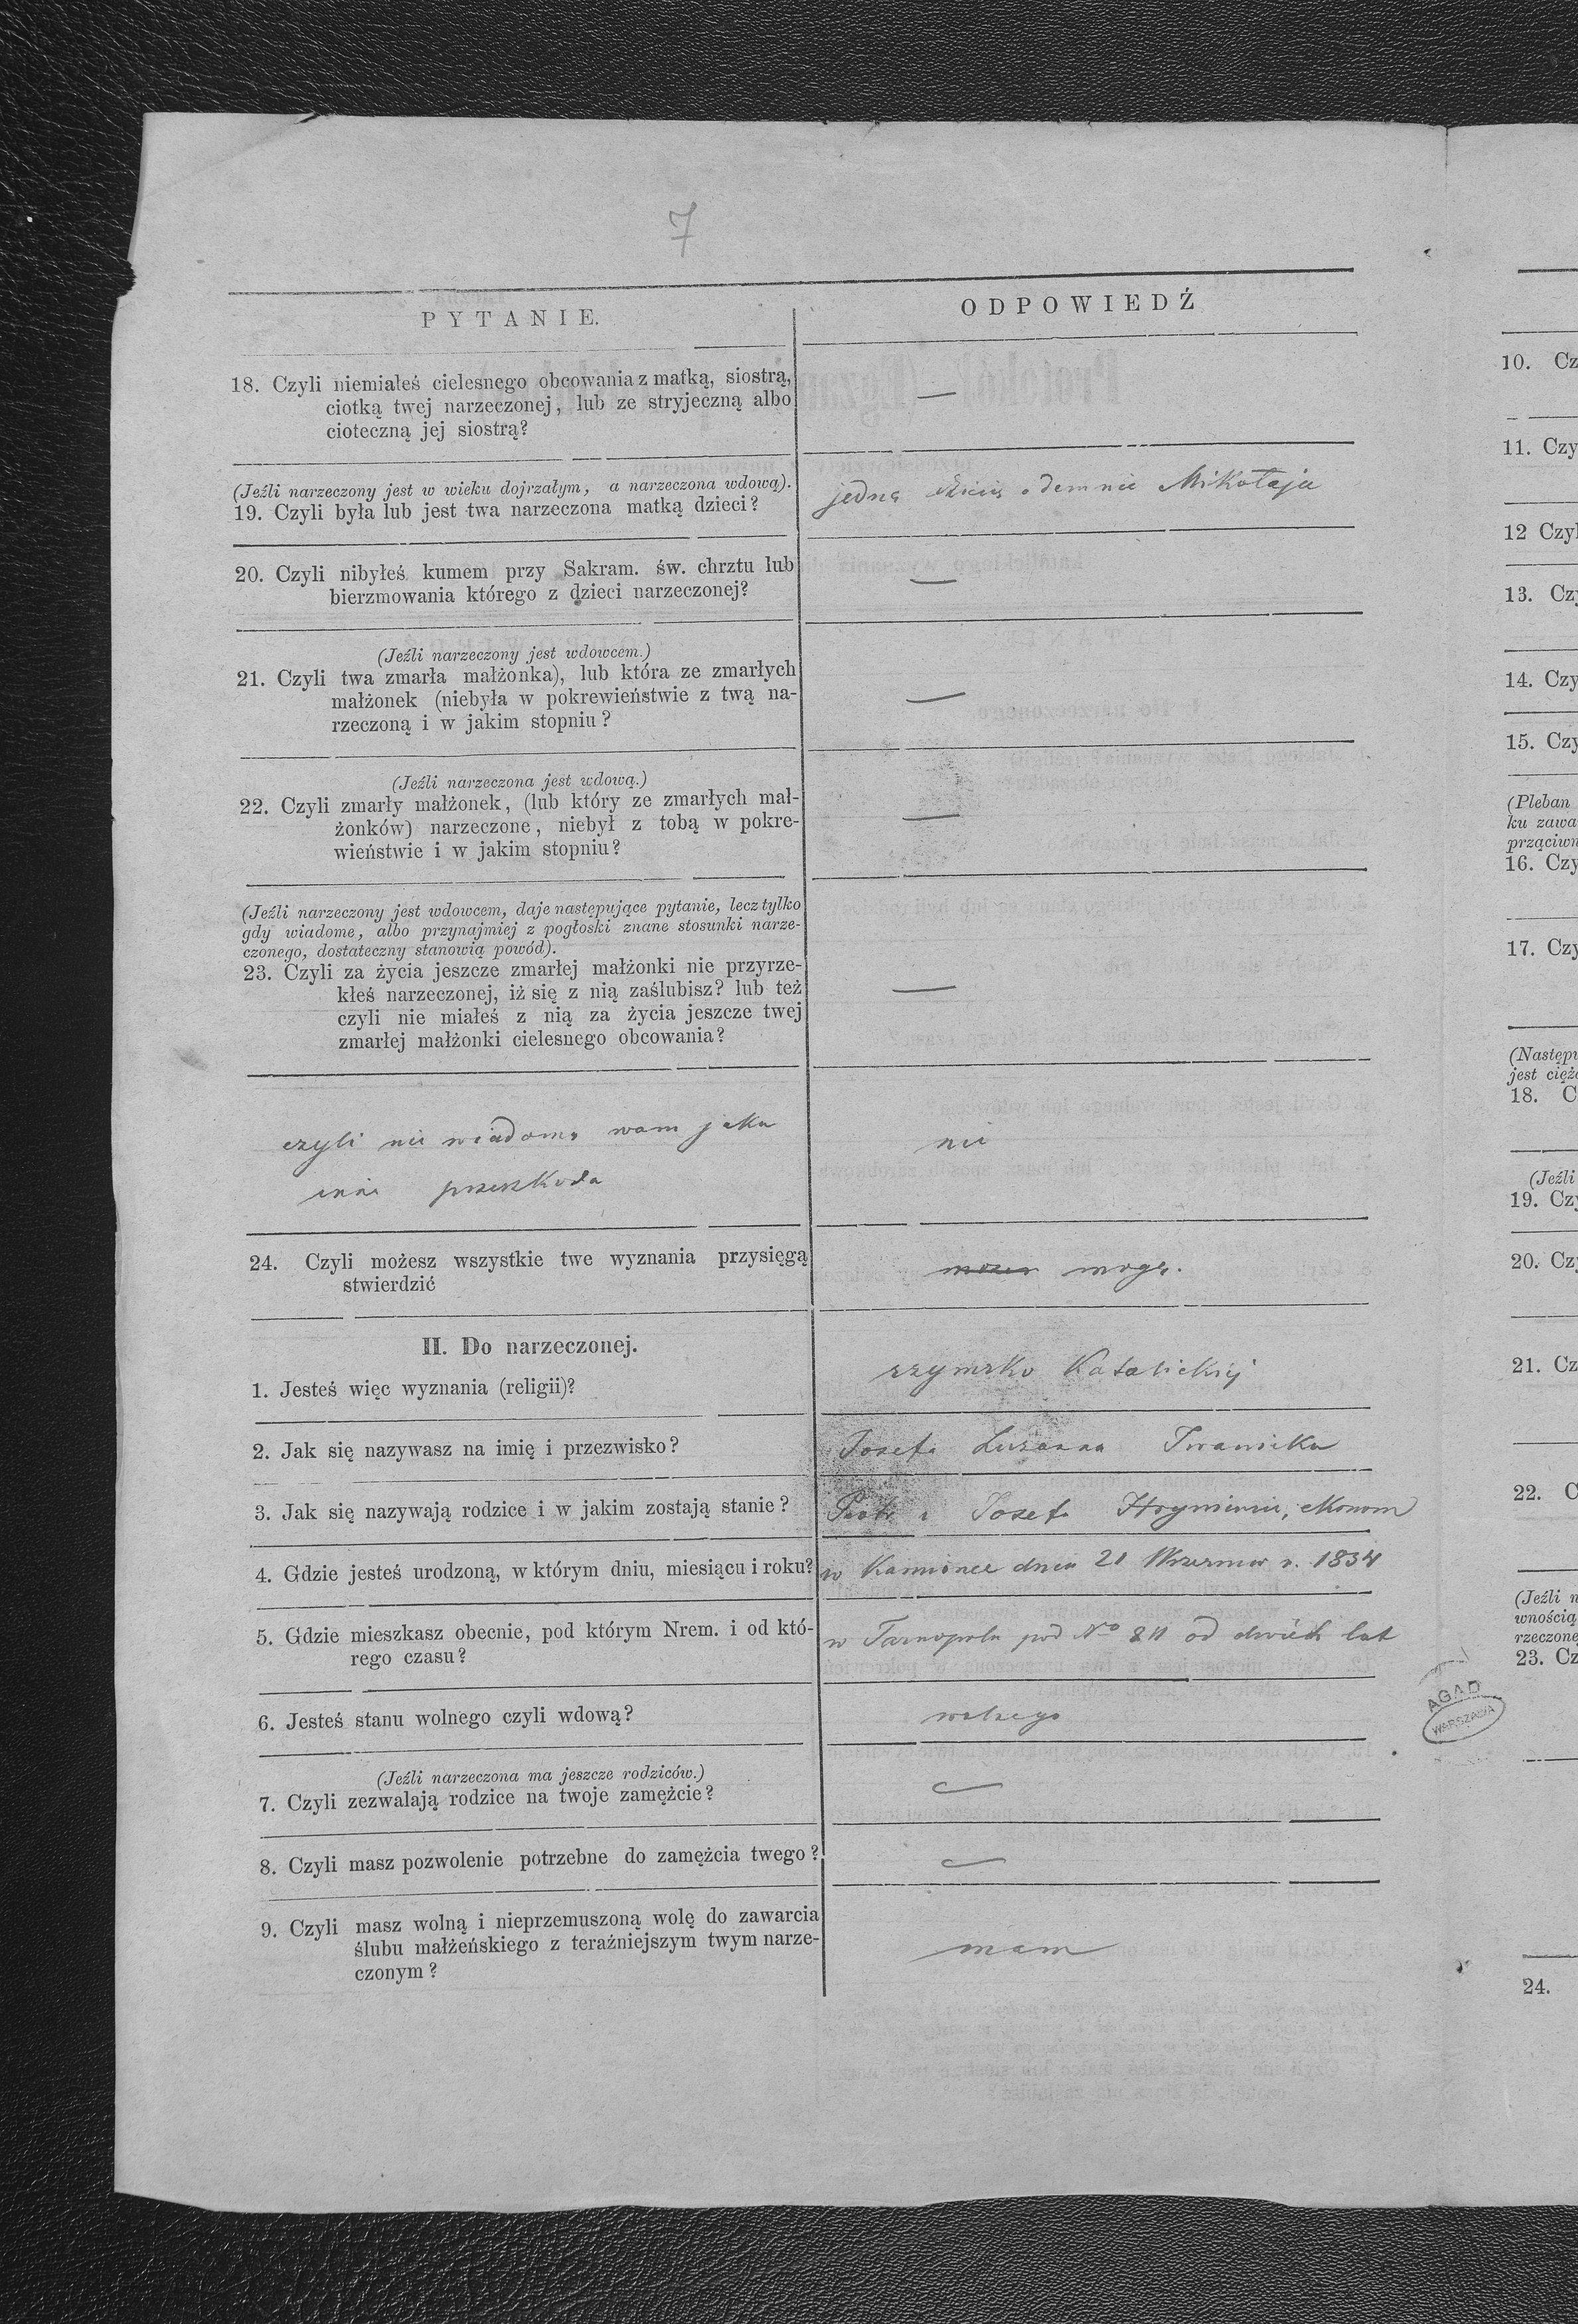 7
PYTANIE.
ODPOWIEDŹ
18. Czyli niemiałeś cielesnego obcowania z matką, siostrą,
ciotką twej narzeczonej, lub ze stryjeczną albo
cioteczną jej siostrą?
—
(Jeźli narzeczony jest w wieku dojrzałym, a narzeczona wdową).
19. Czyli była lub jest twa narzeczona matką dzieci?
jedną dziecię odemnie Mikołaja
20. Czyli nibyłeś kumem przy Sakram. św. chrztu lub
bierzmowania którego z dzieci narzeczonej?
—
(Jeźli narzeczony jest wdowcem.)
21. Czyli twa zmarła małżonka), lub która ze zmarłych
małżonek (niebyła w pokrewieństwie z twą na-
rzeczoną i w jakim stopniu?
—
(Jeźli narzeczona jest wdową.)
22. Czyli zmarły małżonek, (lub który ze zmarłych mał-
żonków) narzeczone, niebył z tobą w pokre-
wieństwie i w jakim stopniu?
—
(Jeźli narzeczony jest wdowcem, daje następujące pytanie, lecz tylko
gdy wiadome, albo przynajmiej z pogłoski znane stosunki narze-
czonego, dostateczny stanowią powód).
23. Czyli za życia jeszcze zmarłej małżonki nie przyrze-
kłeś narzeczonej, iż się z nią zaślubisz? lub też
czyli nie miałeś z nią za życia jeszcze twej
zmarłej małżonki cielesnego obcowania?
—
czyli nie wiadomo wam jaka
inna przeszkoda
nie
24. Czyli możesz wszystkie twe wyznania przysięgą
stwierdzić
mogę.
II. Do narzeczonej.
1. Jesteś więc wyznania (religii)?
rzymsko Katolickiej
2. Jak się nazywasz na imię i przezwisko?
Josefa Zuzanna
3. Jak się nazywają rodzice i w jakim zostają stanie?
Piotr i Josefa ekonom
4. Gdzie jesteś urodzoną, w którym dniu, miesiącu i roku?
w Kamionce dnia 21 r. 1834
5. Gdzie mieszkasz obecnie, pod którym Nrem. i od któ-
rego czasu?
w Tarnopolu pod No od dwóch lat
6. Jesteś stanu wolnego czyli wdową?
wolnego
(Jeźli narzeczona ma jeszcze rodziców.)
7. Czyli zezwalają rodzice na twoje zamężcie?
—
8. Czyli masz pozwolenie potrzebne do zamężcia twego?
—
9. Czyli masz wolną i nieprzemuszoną wolę do zawarcia
ślubu małżeńskiego z teraźniejszym twym narze-
czonym?
mam
10. Cz
11. Czy
12 Czyl
13. Czy
14. Czy
15. Czy
(Pleban
ku zawa
prząciwn
16. Czy
17. Czy
(Następu
jest cięż
18. C
(Jeźli
19. Czy
20. Czy
21. Cz
22. C
(Jeźli n
wnością
rzeczone
23. Cz
24.
AGAD
WARSZAWA